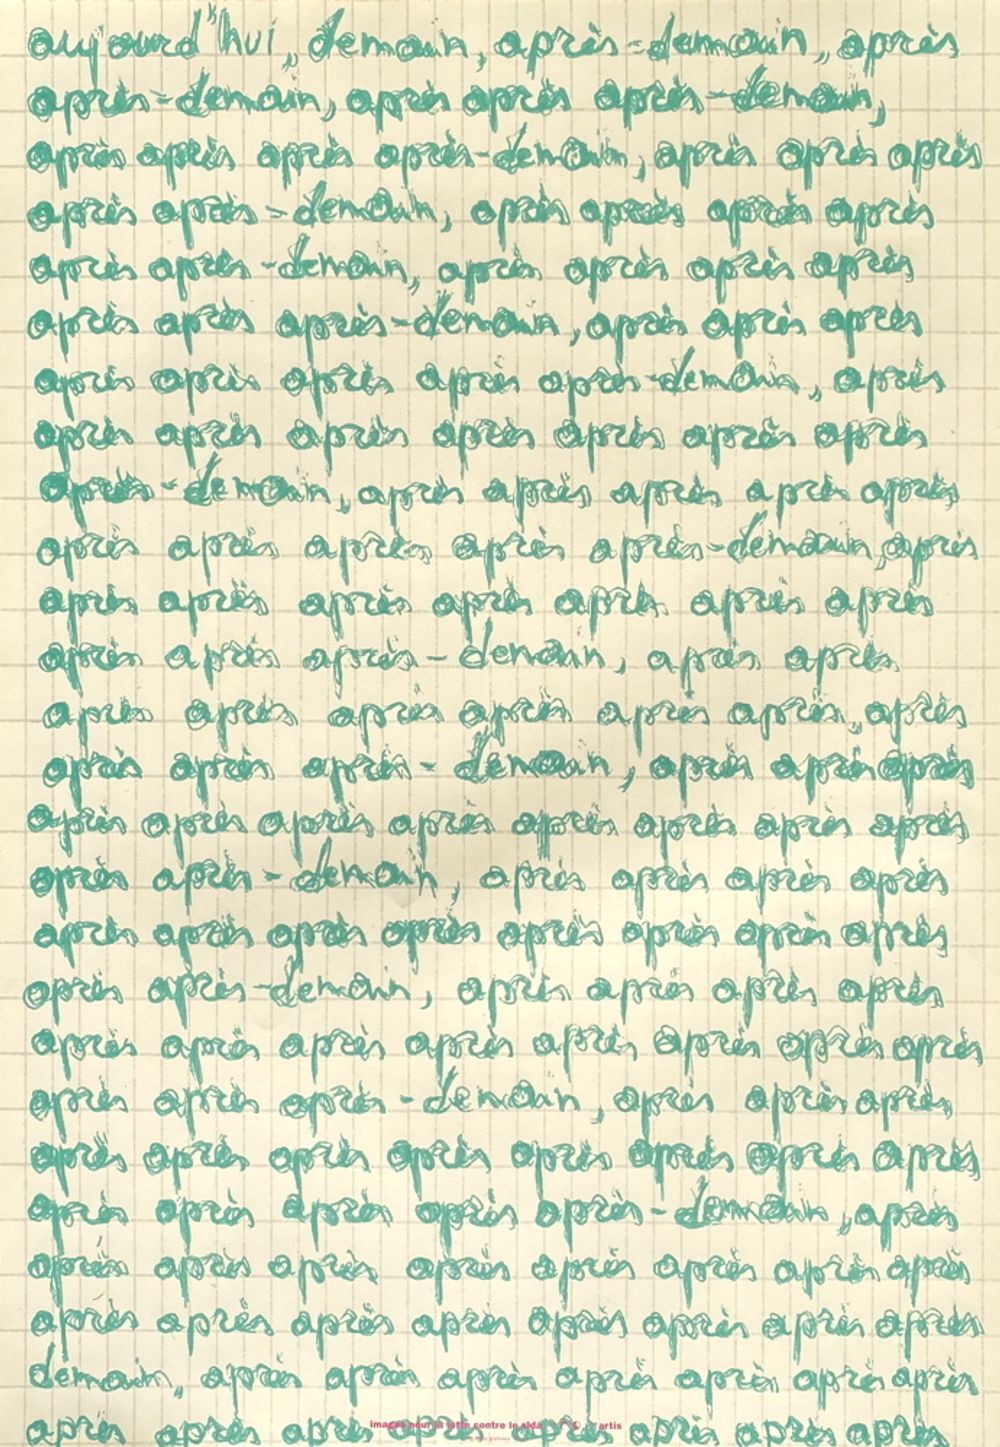 aujourd'hui, demain, après-demain, après
après-demain, après après après-demain,
après après après après-demain, après après après
après après-demain, après après après après
après après-demain, après après après après
après après après-demain, après après après
après après après après après-demain, après
après après après après après après après
après-demain, après après après après après
après après après après après-demain, après
après après après après après après après
après après après-demain, après après
après après après après après après, après
après après après-demain, après après après
après après après après après après après après
après après-demain, après après après après
après après après après après après après après
après après-demain, après après après après
après après après après après après après après
après après après-demain, après après après
après après après après après après après après
après après après après après-demain, après
après après après après après après après après
après après après après après après après après
demain, après après après après après après
après après après après après après après après
images pour la lutte contre le sida artis